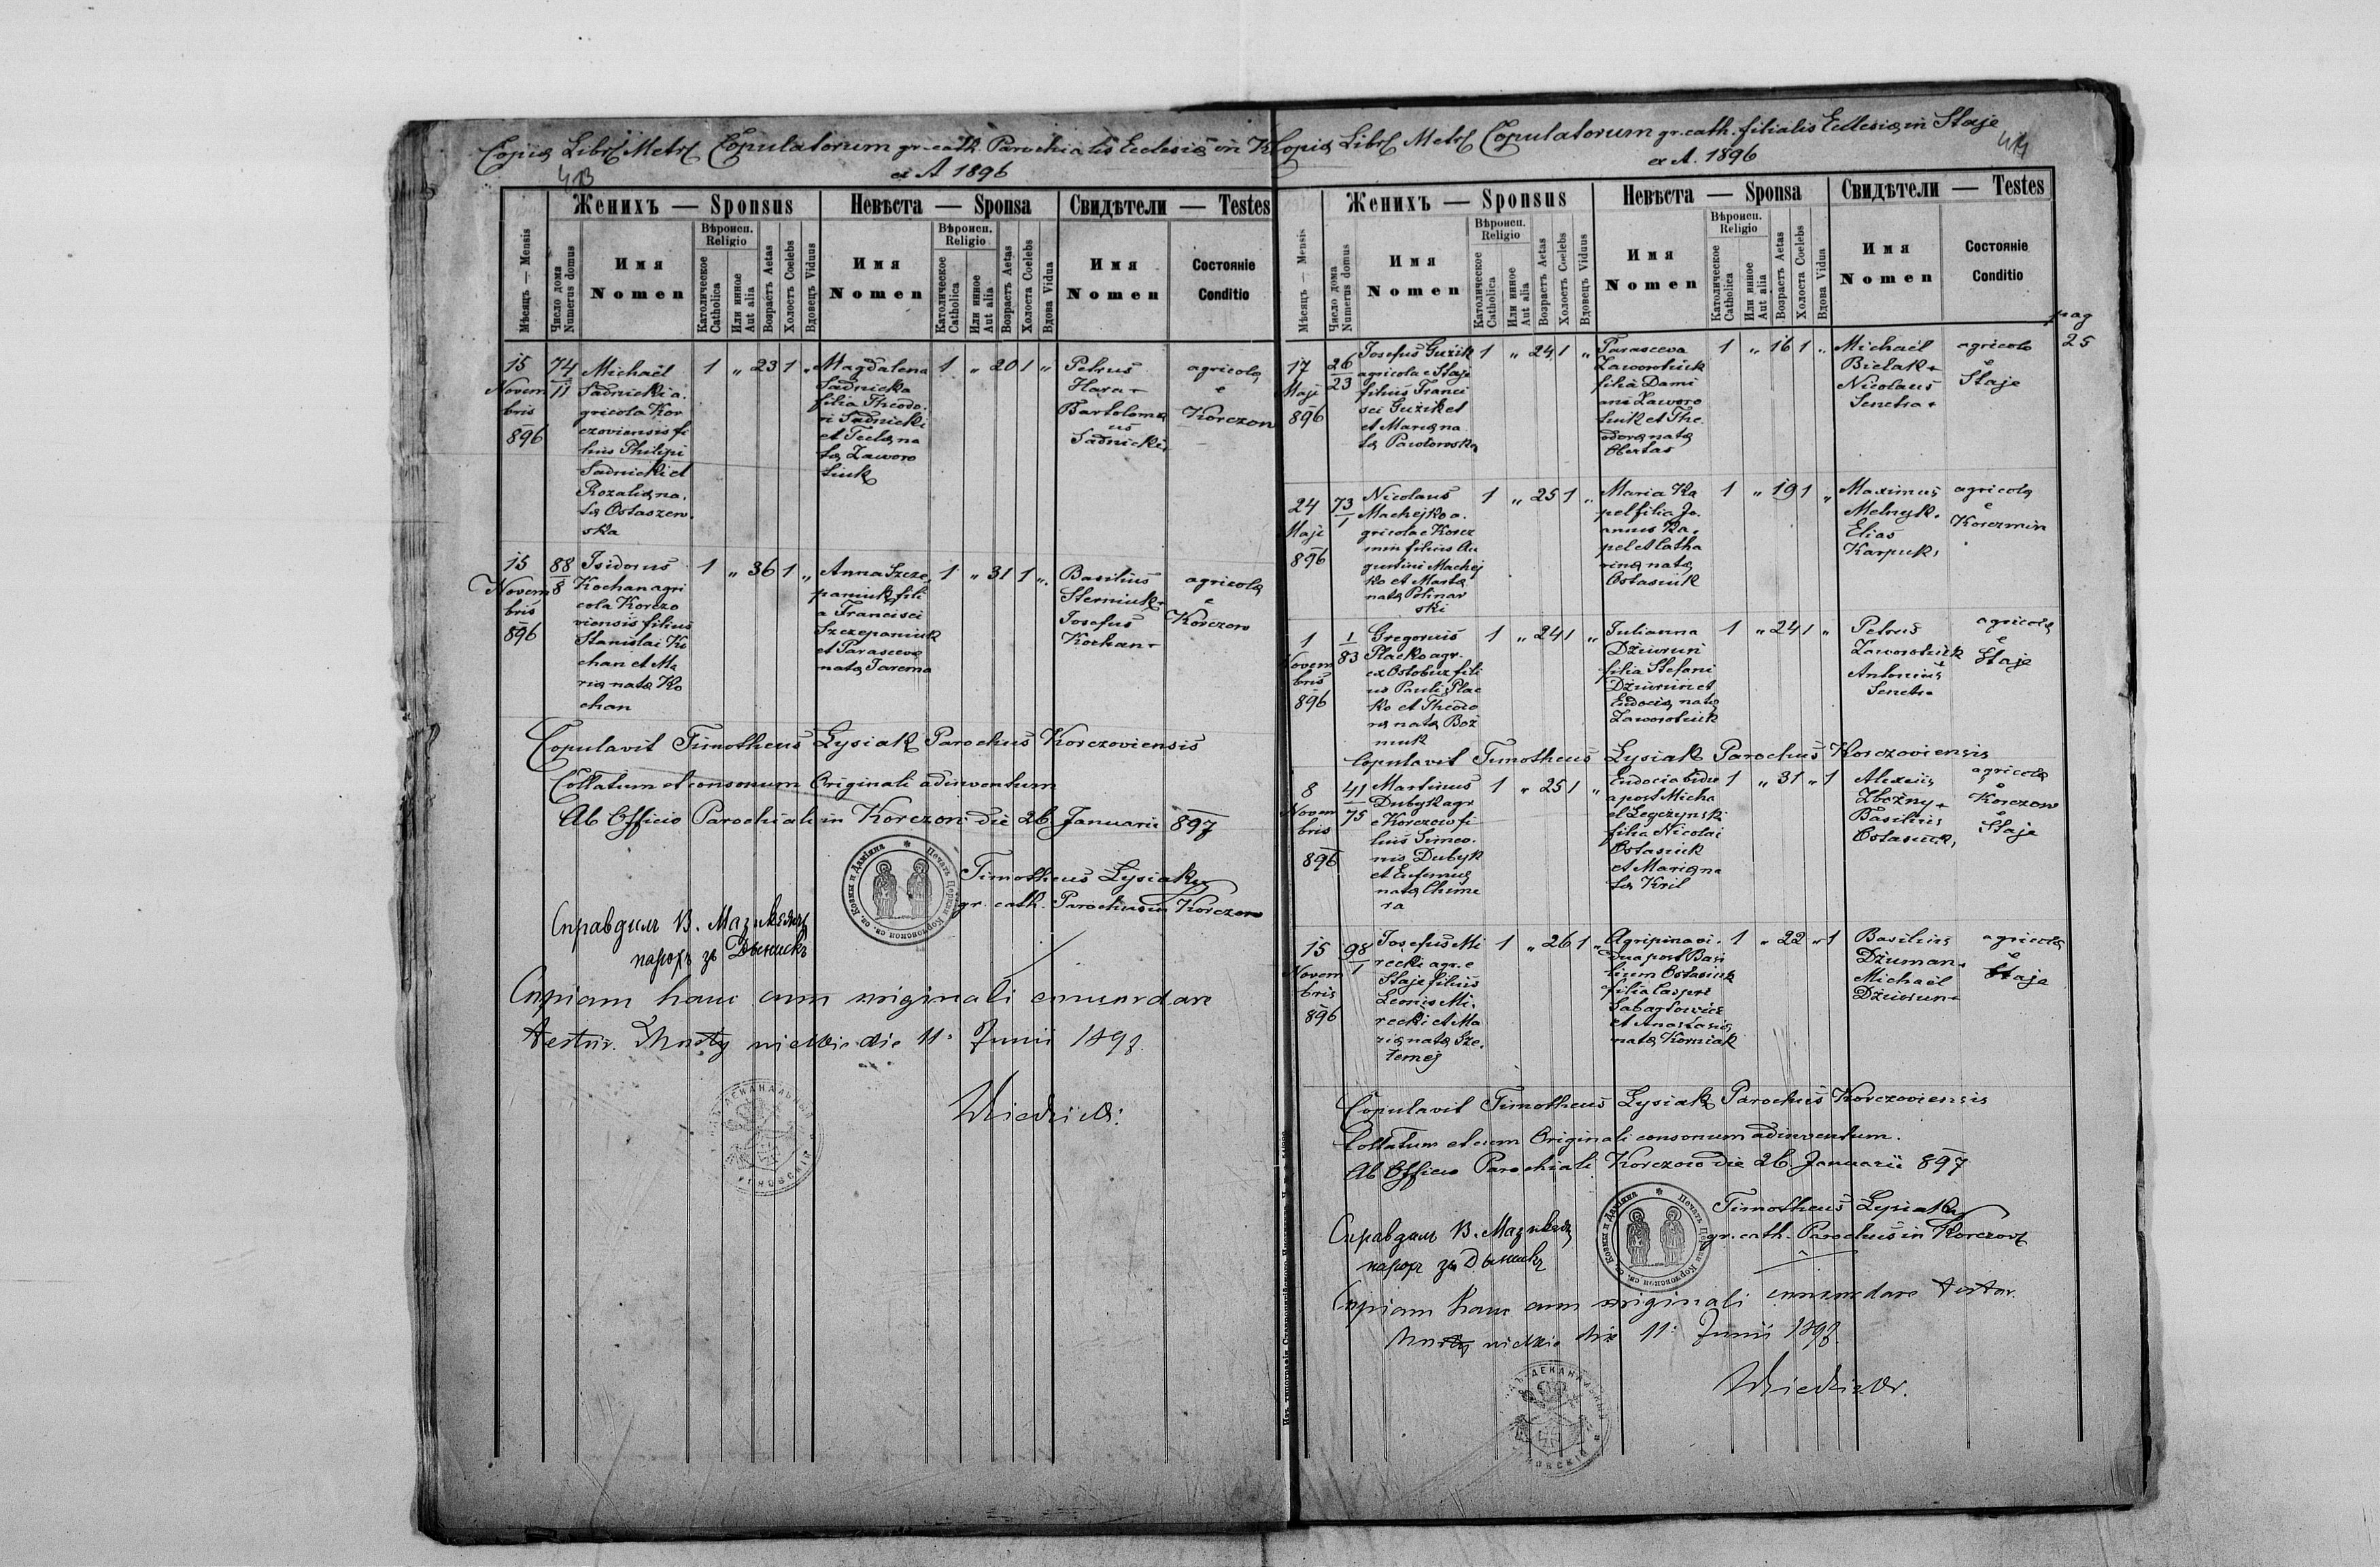 Copia Libri Metr. Copulatorum gr. cath. Parochialis Ecclesiæ in
ex A 1896
413
Женихъ — Sponsus
Невѣста — Sponsa
Свидѣтели — Testes
Мѣсяцъ — Mensis
Число дома
Numerus domus
Имя
Nomen
Вѣроисп.
Religio
Католическое
Catholica
Или инное
Aut alia
Возрастъ Aetas
Холостъ Coelebs
Вдовецъ Viduus
Имя
Nomen
Вѣроисп.
Religio
Католическое
Catholica
Или инное
Aut alia
Возрастъ Aetas
Холоста Coelebs
Вдова Vidua
Имя
Nomen
Состояніе
Conditio
15
Novem
bris
896
74
11
Michaël
Sadnicki a.
gricola Kor
czoviensis fi
lius Philipi
Sadnicki et
Rozaliæ na.
tæ Ostaszew.
ska
1 „ 23 1 „
Magdalena
Sadnicka
filia Theodo.
ri Sadnicki
et Teclæ na
tæ Zaworo
tiuk
1 „ 20 1 „
Petrus
Hara +
Bartolomæ
us
Sadnicki
agricolæ
e
Korczow
15
Novem
bris
896
88
8
Isidorus
Kochan agri
cola Korczo
viensis filius
Stanislai Ko
chan et Ma
riæ natæ Ko
chan
1 „ 36 1 „
Anna Szcze
paniuk fili
a Francisci
Szczepaniuk
et Parascevæ
natæ Jarema
1 „ 31 1 „
Basilius
Sterniuk +
Josefus
Kochan +
agricolæ
e
Korczow
Copulavit Timotheus Lysiak Parochus Korczoviensis
Collatum et consonum Originali adinventum
Ab Officio Parochiali in Korczow die 26 Januarii 897
Timotheus Lysiak
gr. cath. Parochus in Korczow
Справдилъ В.
парохъ зъ
Copiam hanc cum originali concordare
testor. Mosty wielkie die 11 Junii 1897.
Copia Libri Metr. Copulatorum gr. cath. filialis Ecclesiæ in Staje
ex A. 1896
414
Женихъ — Sponsus
Невѣста — Sponsa
Свидѣтели — Testes
Мѣсяцъ — Mensis
Число дома
Numerus domus
Имя
Nomen
Вѣроисп.
Religio
Католическое
Catholica
Или инное
Aut alia
Возрастъ Aetas
Холостъ Coelebs
Вдовецъ Viduus
Имя
Nomen
Вѣроисп.
Religio
Католическое
Catholica
Или инное
Aut alia
Возрастъ Aetas
Холоста Coelebs
Вдова Vidua
Имя
Nomen
Состояніе
Conditio
pag
25
17
Maji
896
26
23
Josefus Guzik
agricola e Staje
filius Franci
sci Guzik et
et Mariæ na
tæ Pawłowska
1 „ 24 1 „
Parasceva
Zaworotiuk
filia Dami
ani Zaworo
tiuk et The
odoræ natæ
Obertas
1 „ 16 1 „
Michaël
Bielak +
Nicolaus
Senetra +
agricolæ
e
Staje
24
Maji
896
73
1
Nicolaus
Machejko a.
gricola e Korcz
min filius Au
gustini Machej
ko et Martæ
natæ Polinar
ski
1 „ 25 1 „
Maria Ka
pel filia Jo.
annis Ka.
pel et Catha
rinæ natæ
Ostasiuk
1 „ 19 1 „
Maximus
Melnyk.
Elias
Karpuk
agricolæ
e
Korczmin
1
Novem
bris
896
1
83
Gregorius
Placko agr.
ex Ostobuz fili
us Pauli Plac
ko et Theodo
ræ natæ Boż
niuk
1 „ 24 1 „
Julianna
Dziurun
filia Stefani
Dziurun et
Eudociæ natæ
Zaworotiuk
1 „ 24 1 „
Petrus
Zaworotiuk
Antonius
Senetra
agricolæ
e
Staje
Copulavit Timotheus Lysiak Parochus Korczoviensis
8
Novem
bris
896
41
75
Martinus
Dubyk agr
e Korczow fi
lius Simeo.
nis Dubyk
et Eufemiæ
natæ Chime
ra
1 „ 25 1 „
Eudocia vidu
a post Micha
el Legczynski
filia Nicolai
Ostasiuk
et Mariæ na
tæ Kril
1 „ 31 „ 1
Alexius
Zbożny +
Basilius
Ostasiuk
agricolæ
e
Korczow
e
Staje
15
Novem
bris
896
98
1
Josefus Mi
recki agr. e
Staje filius
Leonis Mi.
recki et Ma
riæ natæ Sze.
remej
1 „ 26 1 „
Agripina vi.
dua post Basi
lium Ostasiuk
filia Caspri
Sabagłowicz
et Anastasiæ
natæ Korniak
1 „ 22 „ 1
Basilius
Dziuman.
Michaël
Dziurun +
agricolæ
e
Staje
Copulavit Timotheus Lysiak Parochus Korczoviensis
Collatum et cum Originali consonum adinventum.
Ab Officio Parochiali Korczow die 26 Januarii 897
Timotheus Lysiak
gr. cath. Parochus in Korczow
Справдилъ В.
парох зъ
Copiam hanc cum originali concordare testor.
Mosty wielkie die 11 Junii 1897.